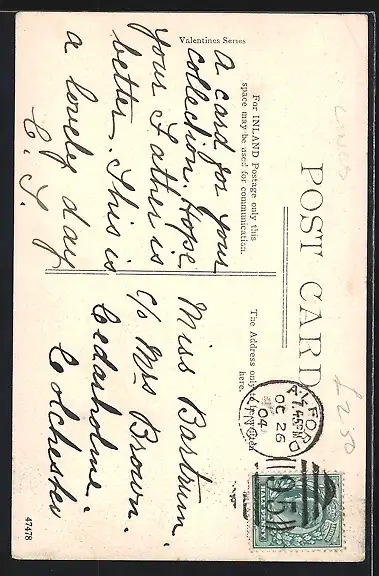 POST CARD
For INLAND Postage only this
space may be used for communication.
The Address only
here.
Valentines Series
A card for your
collection. Hope
your Father is
better. This is
a lovely day
C. S.
Miss Bartrum.
c/o Mrs Brown.
Cedarholme.
Colchester
OC 26
04
HALFPENNY
£2.50
47478